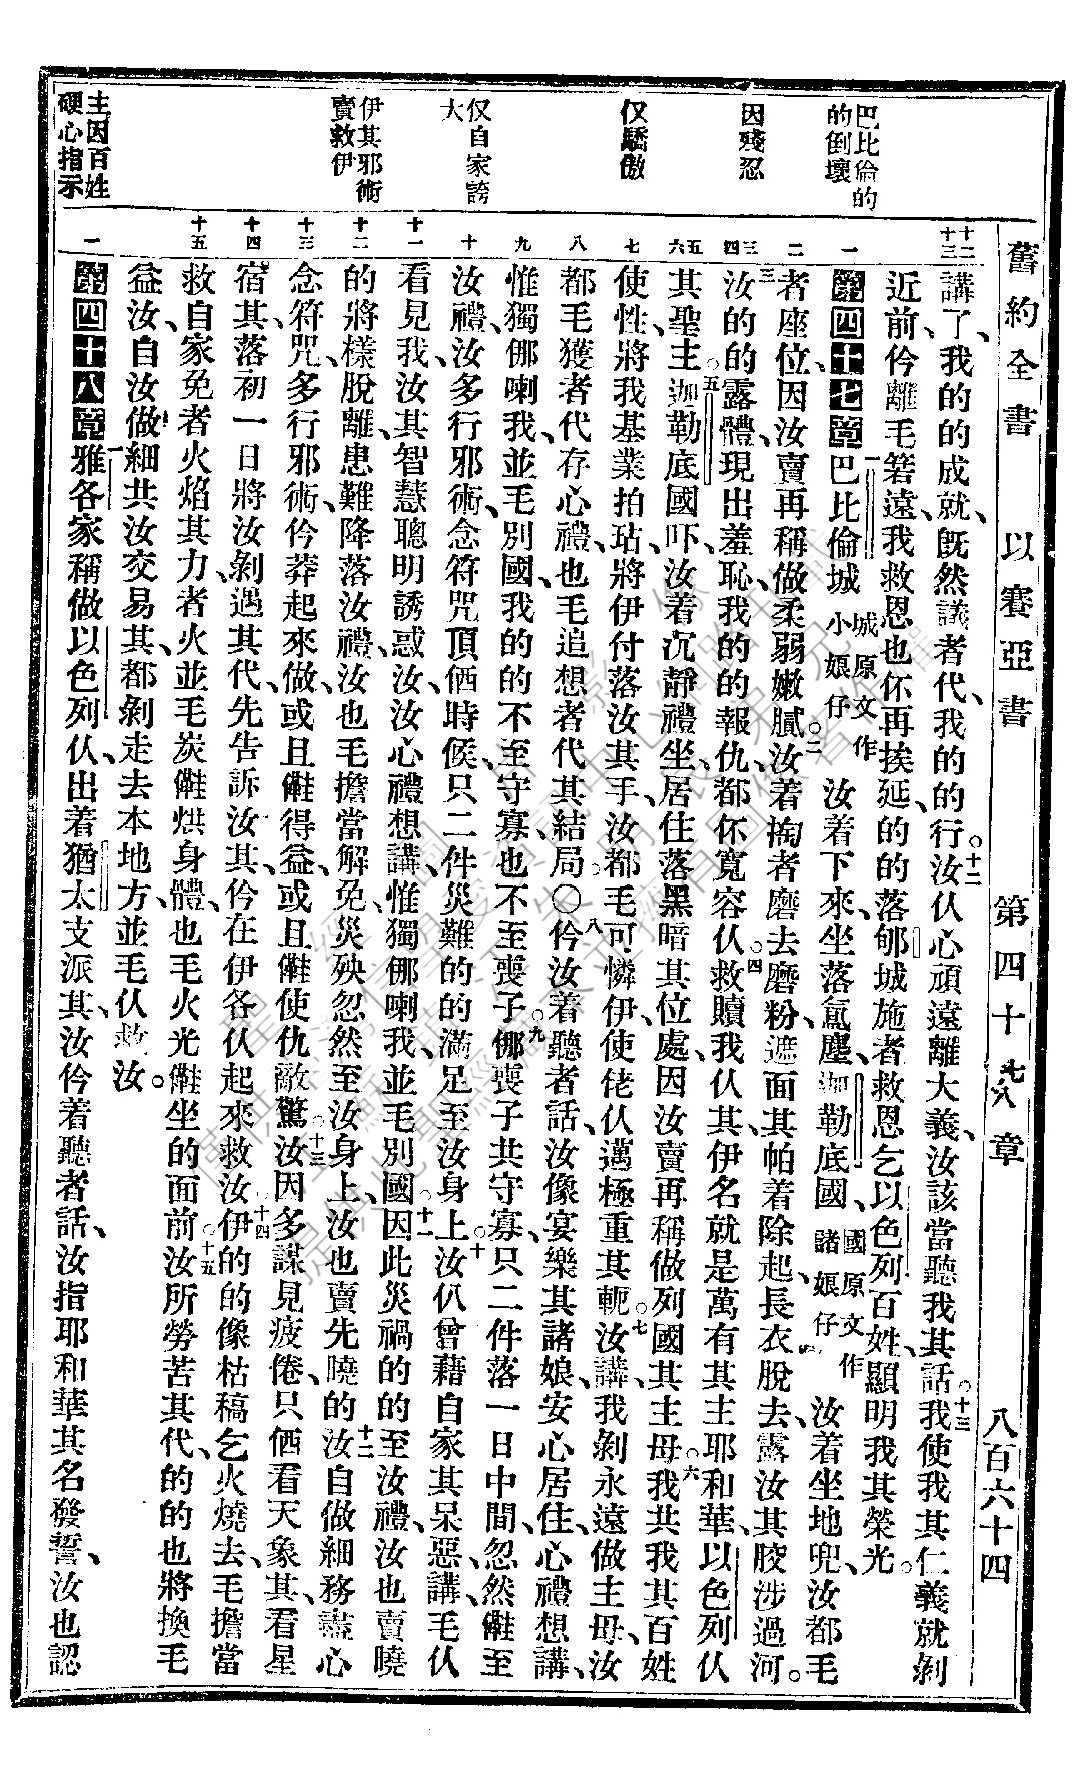 舊約全書　以賽亞書　第四十七八章　八百六十四
巴比倫的
的倒壞
因殘忍
仅驕傲
仅自家誇
大
伊其邪術
賣救伊
主因百姓
硬心指示
十二
十三
一
二
三
四
五
六
七
八
九
十
十一
十二
十三
十四
十五
一
講了、我的的成就、既然議者代、我的的行。十二汝仈心頑遠離大義、汝該當聽我其話。○十三我使我其仁義就剝
近前仱離乇箬遠、我救恩也伓再挨延、的的落郇城施者救恩乞以色列百姓、顯明我其榮光。
第四十七章 一巴比倫城城原文作小娘仔汝着下來、坐落㲴塵、迦勒底國、國原文作諸娘仔汝着坐地兜、汝都乇
者座位、因汝賣再稱做柔弱嫩膩。○二汝着掏者磨去磨粉、遮面其帕着除起、長衣脫去、露汝其骹涉過河。
三汝的的露體、現出羞恥、我的的報仇、都伓寬容仈。○四救贖我仈其、伊名就是萬有其主耶和華、以色列仈
其聖主。○五迦勒底國吓、汝着沉靜禮坐、居住落黑暗其位處、因汝賣再稱做列國其主母。○六我共我其百姓
使性、將我基業拍玷、將伊付落汝其手、汝都乇可憐伊、使佬仈邁極重其軛。○七汝講、我剝永遠做主母、汝
都乇獲者代存心禮、也乇追想者代其結局。○八仱汝着聽者話、汝像宴樂其諸娘、安心居住、心禮想講、
惟獨㑚喇我、並乇別國、我的的不至守寡、也不至喪子。○九㑚喪子共守寡、只二件落一日中間、忽然㒤至
汝禮、汝多行邪術、念符咒頂㑑時候、只二件災難的的滿足至汝身上。○十汝仈曾藉自家其呆惡、講、乇仈
看見我、汝其智慧聰明誘惑汝、汝心禮想講、惟獨㑚喇我、並乇別國。○十一因此災禍的的至汝禮、汝也賣曉
的將樣脫離、患難降落汝禮、汝也乇擔當解免、災殃忽然至汝身上、汝也賣先曉的。十二汝自做細務盡心
念符咒、多行邪術、仱莽起來做、或且㒤得益、或且㒤使仇敵驚。○十三汝因多謀見疲倦、只㑑看天象其、看星
宿其、落初一日將汝剝遇其代先告訴汝其、仱在伊各仈起來救汝。○十四伊的的像枯稿乞火燒去、乇擔當
救自家免者火焰其力、者火並乇炭㒤烘身體、也乇火光㒤坐的面前。○十五汝所勞苦其代、的的也將換乇
益、汝自汝做細共汝交易其、都剝走去本地方、並乇仈救汝。
第四十八章 一雅各家稱做以色列仈、出着猶太支派其、汝仱着聽者話、汝指耶和華其名發誓、汝也認